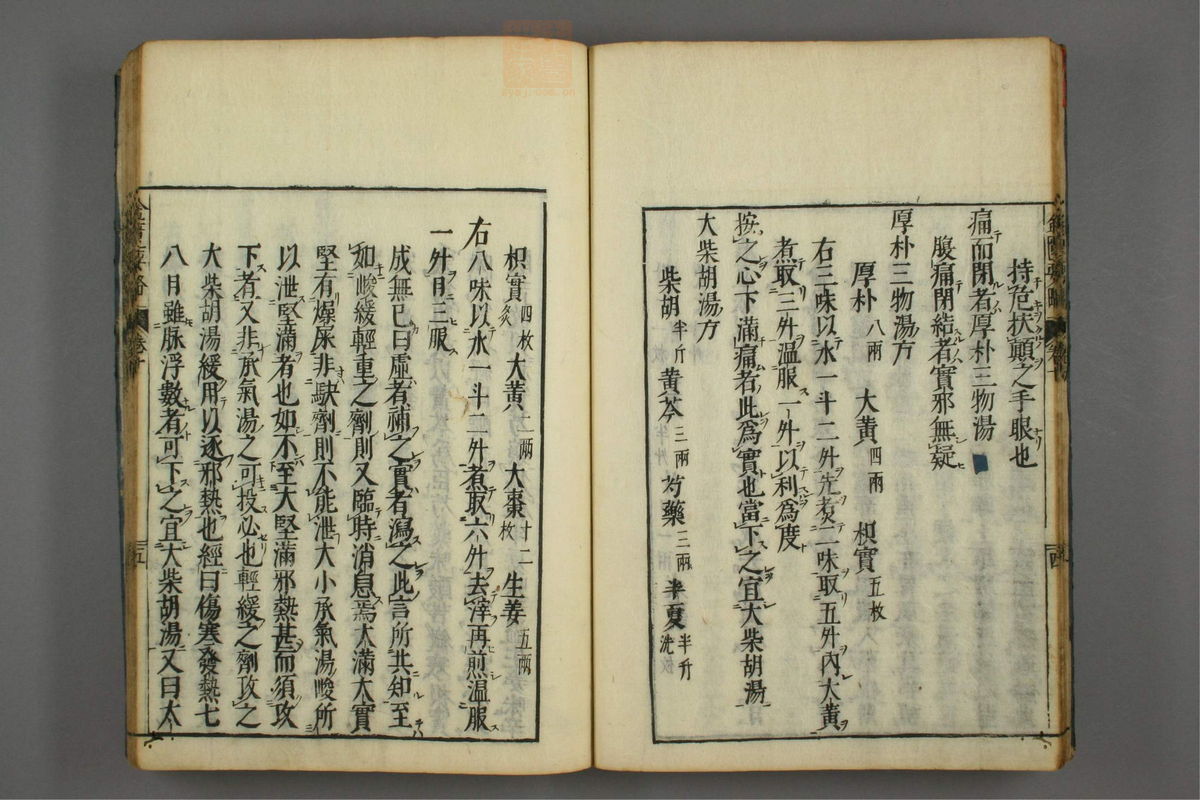 持危状顛之手眼也
痛而閉者厚朴三物湯
腹痛閉結者實邪無疑
厚朴三物湯方
厚朴 八兩 大黄 四兩 枳實 五枚
右三味以水一斗二升先煮二味取五升内大黄
煮取三升温服一升以利爲度
按之心下滿痛者此爲實也當下之宜大柴胡湯
大柴胡湯方
柴胡 半斤 黄芩 三兩 芍藥 三兩 半夏 半斤 洗
枳實 四枚 炙 大黄 二兩 大棗 十二枚 生姜 五兩
右八味以水一斗二升煮取六升去滓再煎温服
一升日三服
成無已曰虚者補之實者瀉之此言所共知至
如峻緩輕重之劑則又臨時消息焉大滿大實
堅有燥屎非駃劑則不能泄大小承氣湯峻所
以泄堅滿者也如不至大堅滿邪熱甚而須攻
下者又非承氣湯之可投必也輕緩之劑攻之
大柴胡湯緩用以逐邪熱也經曰傷寒發熱七
八日雖脉浮數者可下之宜大柴胡湯又曰太